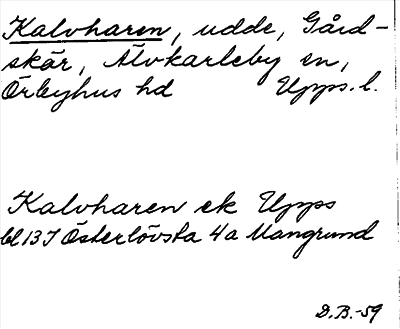 Kalvharen, udde, Gård-
skär, Älvkarleby sn,
Örbyhus hd Upps. l.
Kalvharen ek Upps
bl 13 I Österlövsta 4a Mangrund
D.B.-59